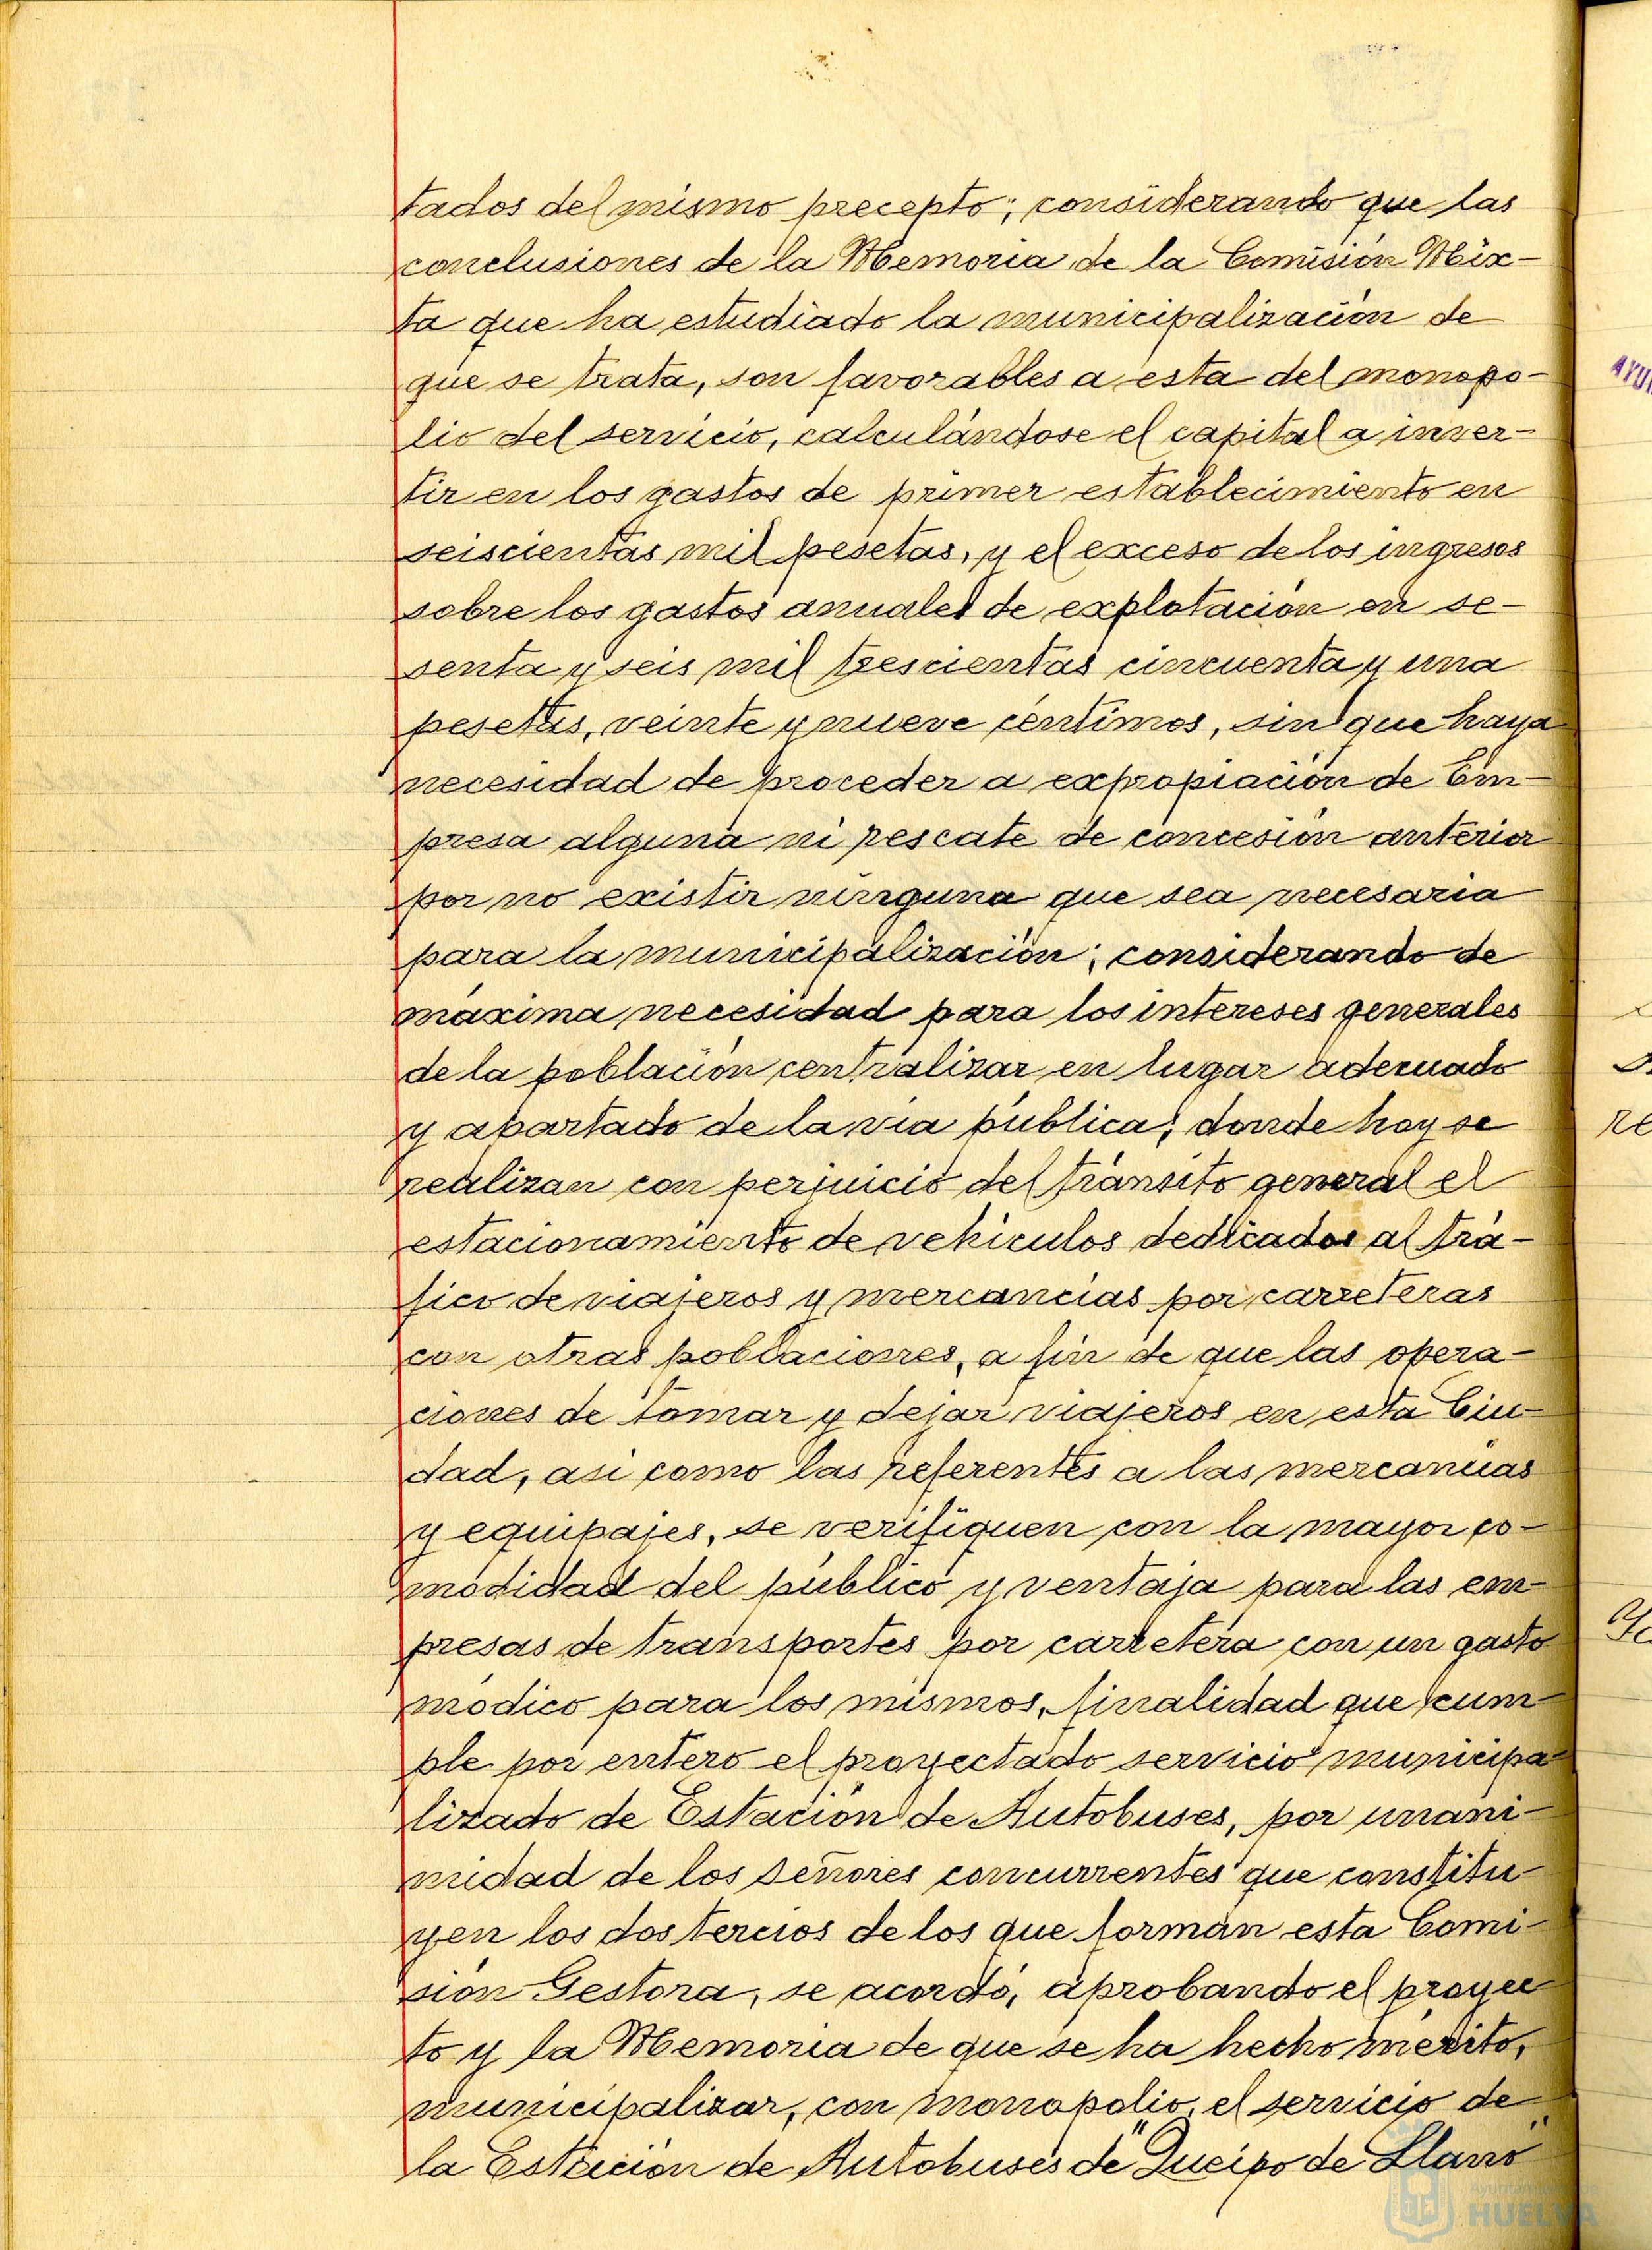 tados del mismo precepto; considerando que las
conclusiones de la Memoria de la Comisión Mix-
ta que ha estudiado la municipalización de
que se trata, son favorables a esta del monopo-
lio del servicio, calculándose el capital a inver-
tir en los gastos de primer establecimiento en
seiscientas mil pesetas, y el exceso de los ingresos
sobre los gastos anuales de explotación en se-
senta y seis mil trescientas cincuenta y una
pesetas, veinte y nueve céntimos, sin que haya
necesidad de proceder a expropiación de Em-
presa alguna ni rescate de concesión anterior
por no existir ninguna que sea necesaria
para la municipalización; considerando de
máxima necesidad para los intereses generales
de la población centralizar en lugar adecuado
y apartado de la vía pública, donde hoy se
realizan con perjuicio del tránsito general el
estacionamiento de vehículos dedicados al trá-
fico de viajeros y mercancías por carreteras
con otras poblaciones, a fin de que las opera-
ciones de tomar y dejar viajeros en esta Ciu-
dad, así como las referentes a las mercancías
y equipajes, se verifiquen con la mayor co-
modidad del público y ventaja para las em-
presas de transportes por carretera con un gasto
módico para los mismos, finalidad que cum-
ple por entero el proyectado servicio municipa-
lizado de Estación de Autobuses, por unani-
midad de los señores concurrentes que constitu-
yen los dos tercios de los que forman esta Comi-
sión Gestora, se acordó, aprobando el proyec-
to y la Memoria de que se ha hecho mérito,
municipalizar, con monopolio, el servicio de
la Estación de Autobuses de "Queipo de Llano"
Ayuntamiento de
HUELVA